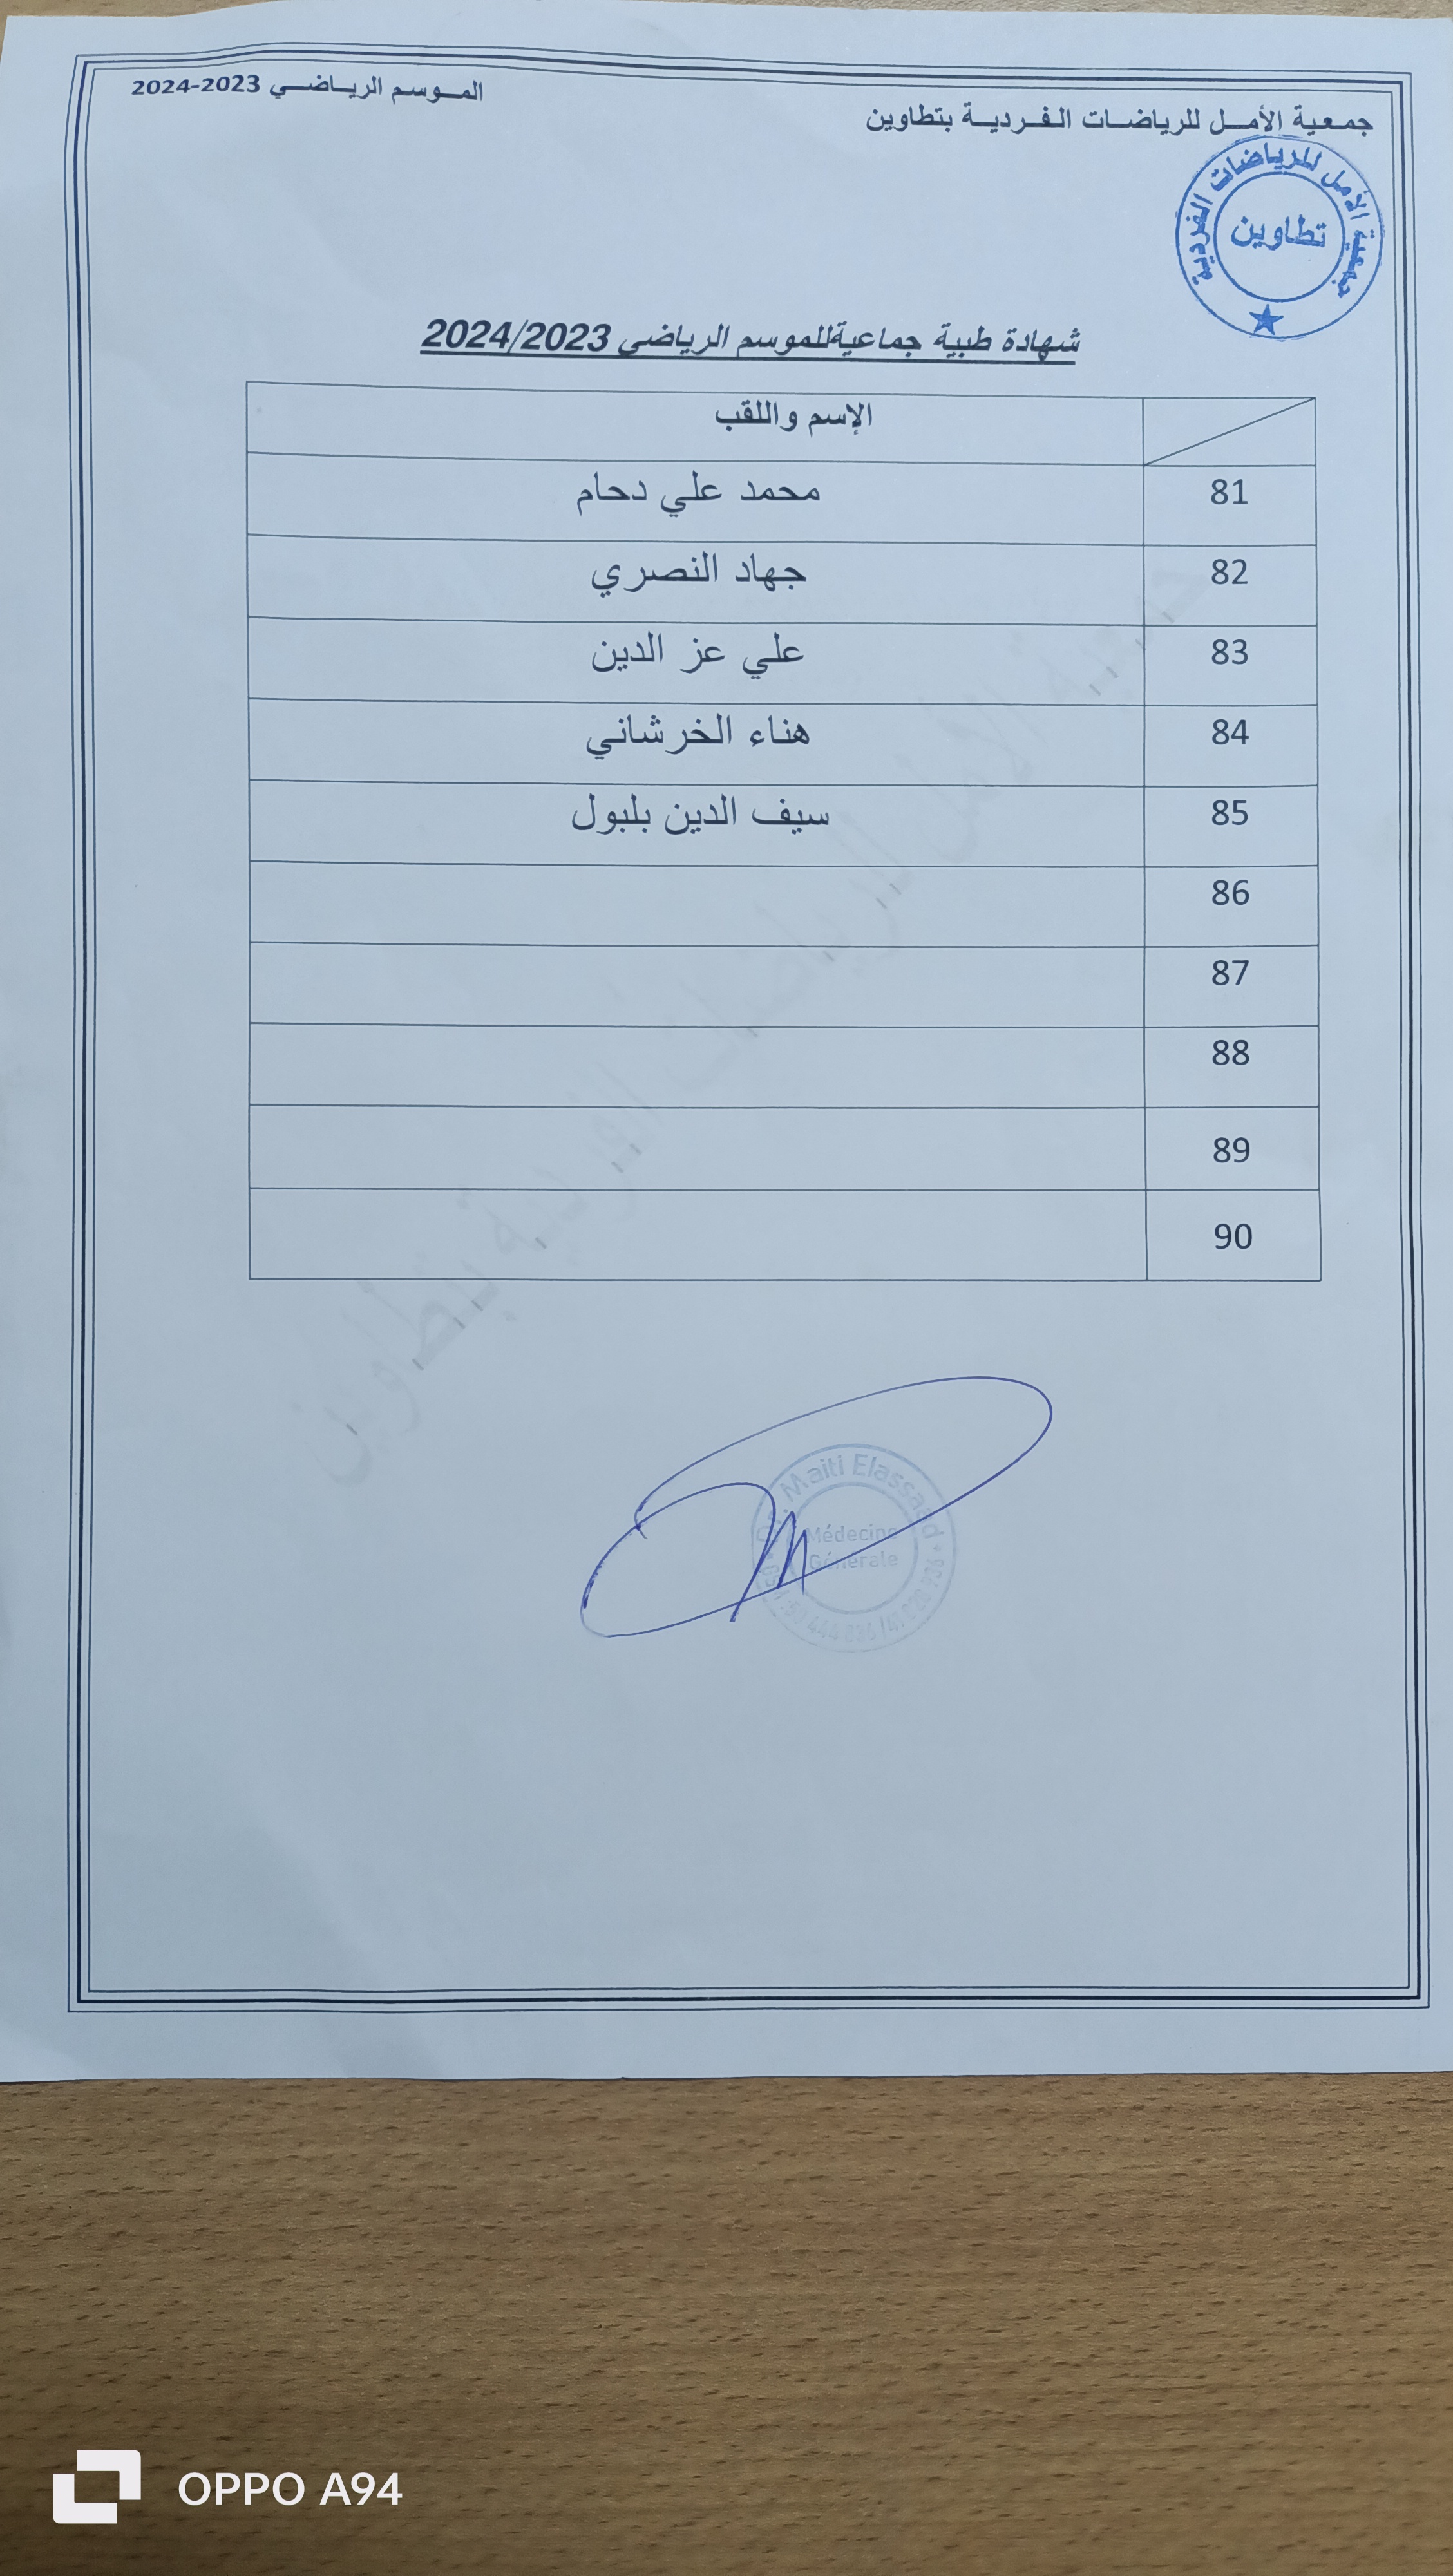 جمعية الأمل للرياضات الفردية بتطاوين
الموسم الرياضي 2023-2024
جمعية الأمل للرياضات الفردية
تطاوين
شهادة طبية جماعيةللموسم الرياضي 2024/2023
الإسم واللقب
81 محمد علي دحام
82 جهاد النصري
83 علي عز الدين
84 هناء الخرشاني
85 سيف الدين بلبول
86
87
88
89
90
جمعية الأمل للرياضات الفردية بتطاوين
Maiti Elassaad
Médecine
Générale
OPPO A94